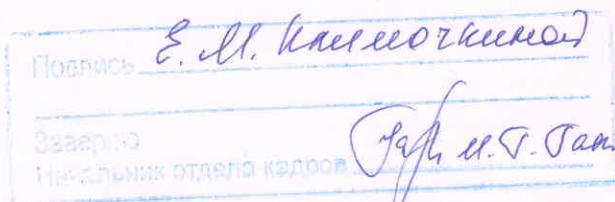 Подпись Е. М. Климочкиной
Заверяю
Начальник отдела кадров М. Г.